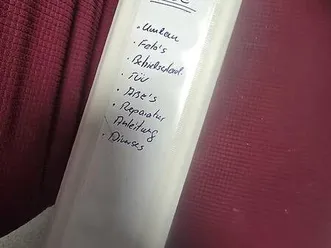 · Umbau
· Foto's
· Betriebschad.
· TÜV
· ABE's
· Reparatur
Anleitung
· Diverses